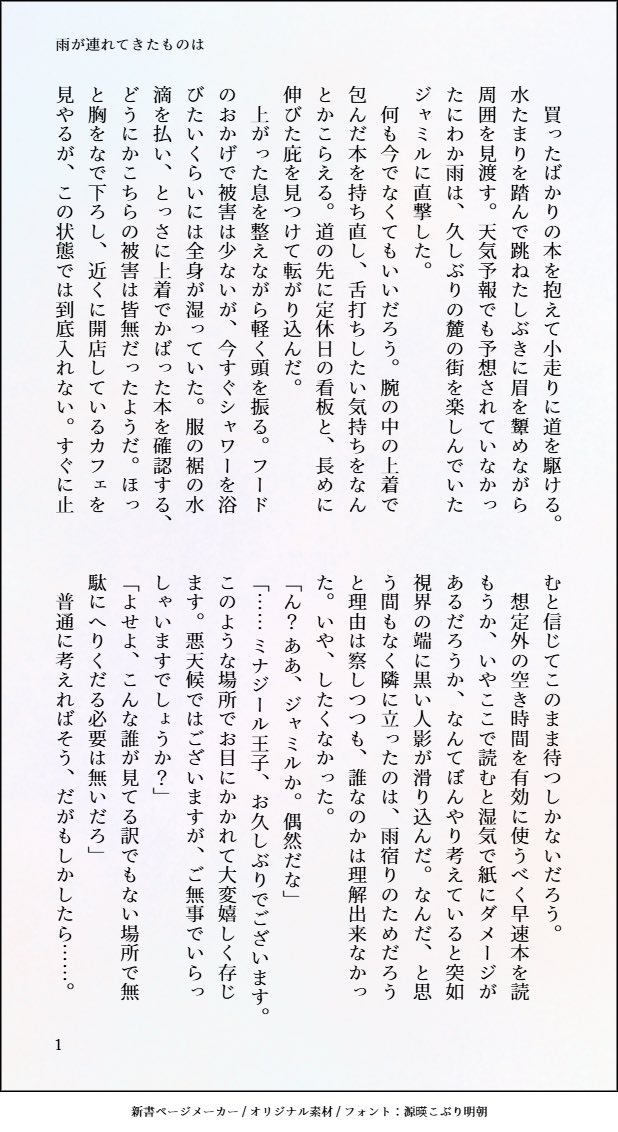 雨が連れてきたものは
　買ったばかりの本を抱えて小走りに道を駆ける。
水たまりを踏んで跳ねたしぶきに眉を顰めながら
周囲を見渡す。天気予報でも予想されていなかっ
たにわか雨は、久しぶりの麓の街を楽しんでいた
ジャミルに直撃した。
　何も今でなくてもいいだろう。腕の中の上着で
包んだ本を持ち直し、舌打ちしたい気持ちをなん
とかこらえる。道の先に定休日の看板と、長めに
伸びた庇を見つけて転がり込んだ。
　上がった息を整えながら軽く頭を振る。フード
のおかげで被害は少ないが、今すぐシャワーを浴
びたいくらいには全身が湿っていた。服の裾の水
滴を払い、とっさに上着でかばった本を確認する、
どうにかこちらの被害は皆無だったようだ。ほっ
と胸をなで下ろし、近くに開店しているカフェを
見やるが、この状態では到底入れない。すぐに止
むと信じてこのまま待つしかないだろう。
　想定外の空き時間を有効に使うべく早速本を読
もうか、いやここで読むと湿気で紙にダメージが
あるだろうか、なんてぼんやり考えていると突如
視界の端に黒い人影が滑り込んだ。なんだ、と思
う間もなく隣に立ったのは、雨宿りのためだろう
と理由は察しつつも、誰なのかは理解出来なかっ
た。いや、したくなかった。
「ん？ああ、ジャミルか。偶然だな」
「……ミナジール王子、お久しぶりでございます。
このような場所でお目にかかれて大変嬉しく存じ
ます。悪天候ではございますが、ご無事でいらっ
しゃいますでしょうか？」
「よせよ、こんな誰が見てる訳でもない場所で無
駄にへりくだる必要は無いだろ」
　普通に考えればそう、だがもしかしたら……。
1
新書ページメーカー / オリジナル素材 / フォント：源暎こぶり明朝